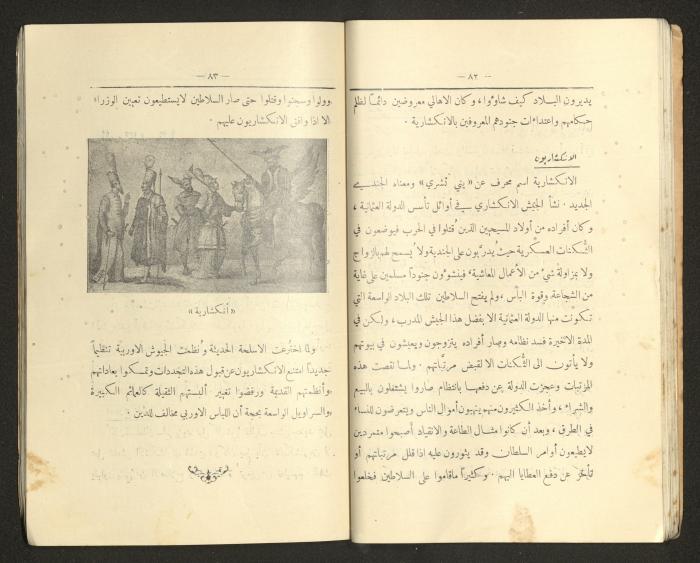 — ٨٢ —
يديرون البلاد كيف شاؤوا، وكان الاهالي معروضين دائمًا لظلم
حكامهم واعتداءات جنودهم المعروفين بالانكشارية .
الانكشاريون
الانكشارية اسم محرف عن «يني تشري» ومعناه الجندي
الجديد . نشأ الجيش الانكشاري في أوائل تأسس الدولة العثمانية ،
وكان أفراده من أولاد المسيحيين الذين قُتلوا في الحرب فيوضعون في
الثُكنات العسكرية حيث يُدرَّبون على الجندية ولا يُسمح لهم بالزواج
ولا بمزاولة شيء من الأعمال المعاشية . فينشؤون جنودًا مسلمين على غاية
من الشجاعة وقوة البأس ، ولم يفتح السلاطين تلك البلاد الواسعة التي
تكوّنت منها الدولة العثمانية الا بفضل هذا الجيش المدرب ، ولكن في
المدة الاخيرة فسد نظامه وصار أفراده يتزوجون ويعيشون في بيوتهم
ولا يأتون الى الثُكنات الا لقبض مرتّباتهم . ولما نقصت هذه
المرتبات وعجزت الدولة عن دفعها بانتظام صاروا يشتغلون بالبيع
والشراء ، وأخذ الكثيرون منهم ينهبون أموال الناس ويتعرضون للنساء
في الطرق ، وبعد أن كانوا مثال الطاعة والانقياد أصبحوا متمردين
لا يطيعون أوامر السلطان وقد يثورون عليه اذا قلل مرتباتهم أو
تأخر عن دفع العطايا اليهم . وكثيرًا ما قاموا على السلاطين فخلعوا
— ٨٣ —
وولوا وسجنوا وقتلوا حتى صار السلاطين لا يستطيعون تعيين الوزراء
الا اذا وافق الانكشاريون عليهم .
« انكشارية »
ولما اختُرعت الاسلحة الحديثة ونُظمت الجيوش الاوربية تنظيمًا
جديدًا امتنع الانكشاريون عن قبول هذه التجددات وتمسكوا بعاداتهم
وأنظمتهم القديمة ورفضوا تغيير ألبستهم الثقيلة كالعمائم الكبيرة
والسراويل الواسعة بحجة أن اللباس الاوربي مخالف للدين .